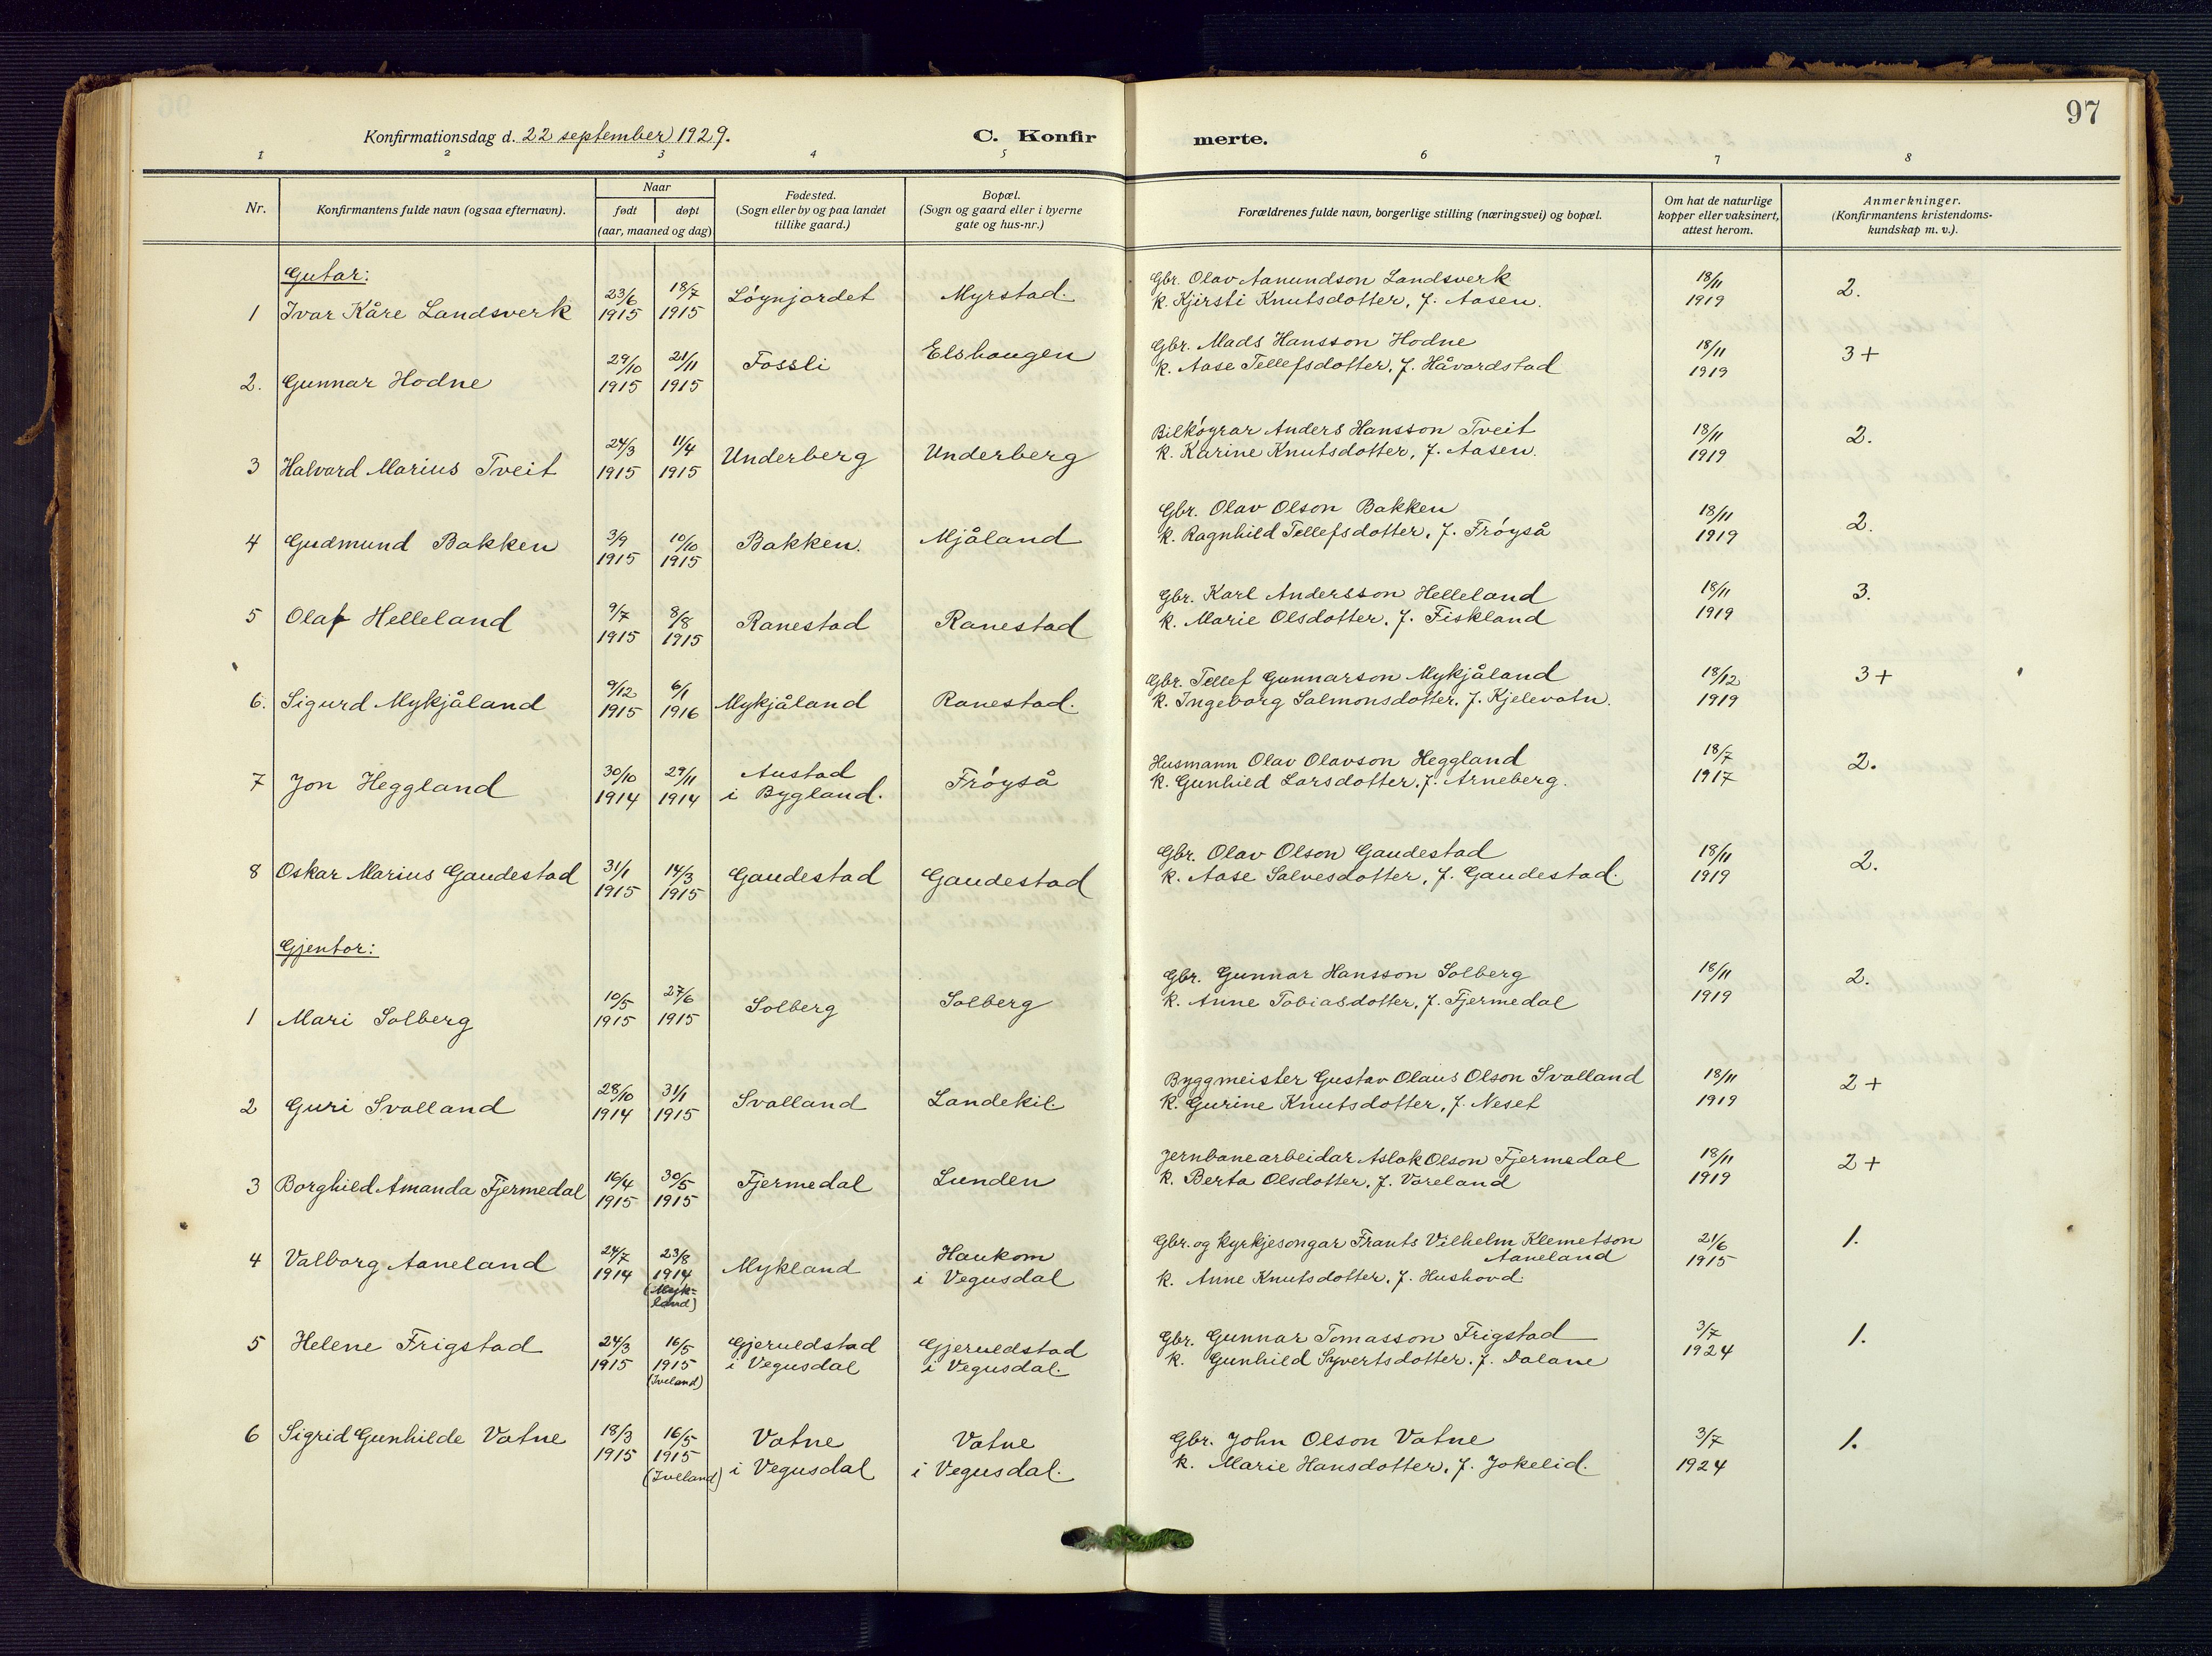 97
Konfirmationsdag d. 22 september 1929.
C. Konfir
merte.
1 2 3 4 5 6 7 8
Nr.
Konfirmantens fulde navn (ogsaa efternavn).
Naar
født døpt
(aar, maaned og dag)
Fødested.
(Sogn eller by og paa landet
tillike gaard.)
Bopæl.
(Sogn og gaard eller i byerne
gate og hus-nr.)
Forældrenes fulde navn, borgerlige stilling (næringsvei) og bopæl.
Om hat de naturlige
kopper eller vaksinert,
attest herom.
Anmerkninger.
(Konfirmantens kristendoms-
kundskap m. v.).
Gutar:
1 Ivar Kåre Landsverk 23/6 1915 18/7 1915 Løynjordet Myrstad.
Gbr. Olav Aanundson Landsverk
k. Kjirsti Knutsdotter, f. Aasen.
18/11 1919 2.
2. Gunnar Hodne 29/10 1915 21/11 1915 Fossli Elshaugen
Gbr. Mads Hansson Hodne
k. Aase Tellefsdotter, f. Håvardstad
18/11 1919 3+
3 Halvard Marius Tveit 24/3 1915 11/4 1915 Underberg Underberg
Bilkøyrar Anders Hansson Tveit
k. Karine Knutsdotter, f. Aasen.
18/11 1919 2.
4 Gudmund Bakken 3/9 1915 10/10 1915 Bakken. Mjåland
Gbr. Olav Olson Bakken
k. Ragnhild Tellefsdotter, f. Frøyså
18/11 1919 2.
5 Olaf Helleland 9/7 1915 8/8 1915 Ranestad Ranestad
Gbr. Karl Andersson Helleland
k. Marie Olsdotter, f. Fiskland
18/11 1919 3.
6. Sigurd Mykjåland 9/12 1915 6/1 1916 Mykjåland Ranestad.
Gbr. Tellef Gunnarson Mykjåland
k. Ingeborg Salmonsdotter, f. Kjelevatn.
18/12 1919 3+
7 Jon Heggland 30/10 1914 29/11 1914 Austad
i Bygland. Frøyså
Husmann Olav Olavson Heggland
k. Gunhild Larsdotter, f. Arneberg.
18/7 1917 2.
8 Oskar Marius Gaudestad 31/1 1915 14/3 1915 Gaudestad Gaudestad
Gbr. Olav Olson Gaudestad
k. Aase Salvesdotter, f. Gaudestad.
18/11 1919 2.
Gjentor:
1 Mari Solberg 10/5 1915 27/6 1915 Solberg Solberg
Gbr. Gunnar Hansson Solberg
k. Anne Tobiasdotter, f. Fjermedal
18/11 1919 2.
2 Guri Svalland 28/10 1914 31/1 1915 Svalland Landekil
Byggmeister Gustav Olaus Olson Svalland
k. Gurine Knutsdotter, f. Neset
18/11 1919 2+
3 Borghild Amanda Fjermedal 16/4 1915 30/5 1915 Fjermedal Lunden
Jernbanearbeidar Aslak Olson Fjermedal
k. Berta Olsdotter, f. Våreland
18/11 1919 2+
4 Valborg Aaneland 24/7 1914 23/8 1914 (Myk-
land) Mykland Haukom
i Vegusdal
Gbr. og kyrkjesongar Frants Vilhelm Klemetson
Aaneland
k. Anne Knutsdotter, f. Hushovd.
21/6 1915 1.
5 Helene Frigstad 24/3 1915 16/5 1915 (Iveland) Gjeruldstad
i Vegusdal Gjeruldstad
i Vegusdal.
Gbr. Gunnar Tomasson Frigstad
k. Gunhild Syvertsdotter, f. Dalane
3/7 1924 1.
6 Sigrid Gunhilde Vatne 18/3 1915 16/5 1915 (Iveland) Vatne
i Vegusdal Vatne
i Vegusdal.
Gbr. John Olson Vatne
k. Marie Hansdotter, f. Jokelid.
3/7 1924 1.